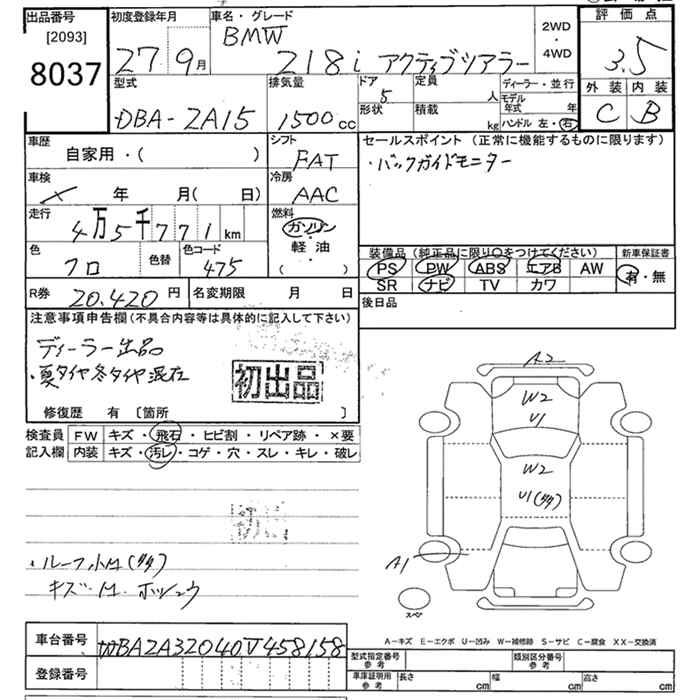 出品番号
[2093]
8037
初度登録年月
27年9月
車名・グレード
BMW
218i アクティブツアラー
2WD
・
4WD
評価点
3.5
外装 内装
C B
型式
DBA-2A15
排気量
1500cc
ドア
5
定員
人
形状
積載
kg
ディーラー・並行
モデル年式 年
ハンドル 左・右
車歴
自家用・( )
シフト
FAT
車検
年 月( 日)
冷房
AAC
走行
4万5千771km
燃料
ガソリン
・
軽油
( )
色
クロ
色替
色コード
475
R券
20,420円
名変期限 月 日
セールスポイント (正常に機能するものに限ります)
・バックガイドモニター
装備品 (純正品に限り○をつけてください)
新車保証書
PS PW ABS エアB AW
SR ナビ TV カワ
有・無
後日品
注意事項申告欄(不具合内容等は具体的に記入して下さい)
ディーラー出品
・夏タイヤ冬タイヤ混在
初出品
修復歴 有 [箇所 ]
検査員
記入欄
FW キズ・飛石・ヒビ割・リペア跡・×要
内装 キズ・汚レ・コゲ・穴・スレ・キレ・破レ
A2
W2
U1
W2
U1
A1
スペア
・ルーフ小
キズ
A-キズ E-エクボ U-凹み W-補修跡 S-サビ C-腐食 XX-交換済
車台番号
BA2A32040V458158
登録番号
型式指定番号
参考
類別区分番号
参考
車庫証明用
参考
長さ cm
幅 cm
高さ cm